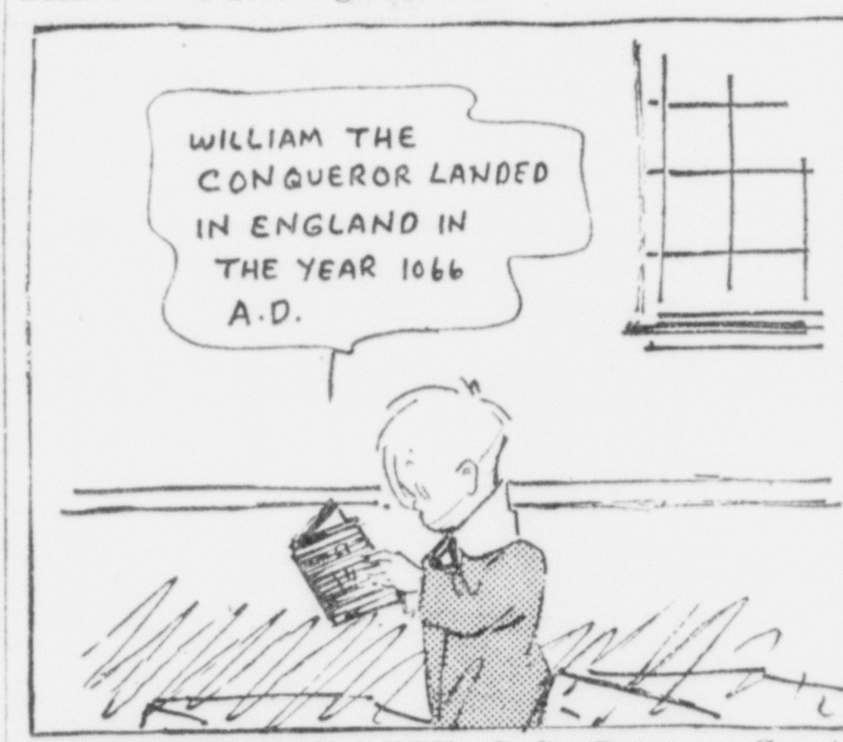 WILLIAM THE
CONQUEROR LANDED
IN ENGLAND IN
THE YEAR 1066
A.D.